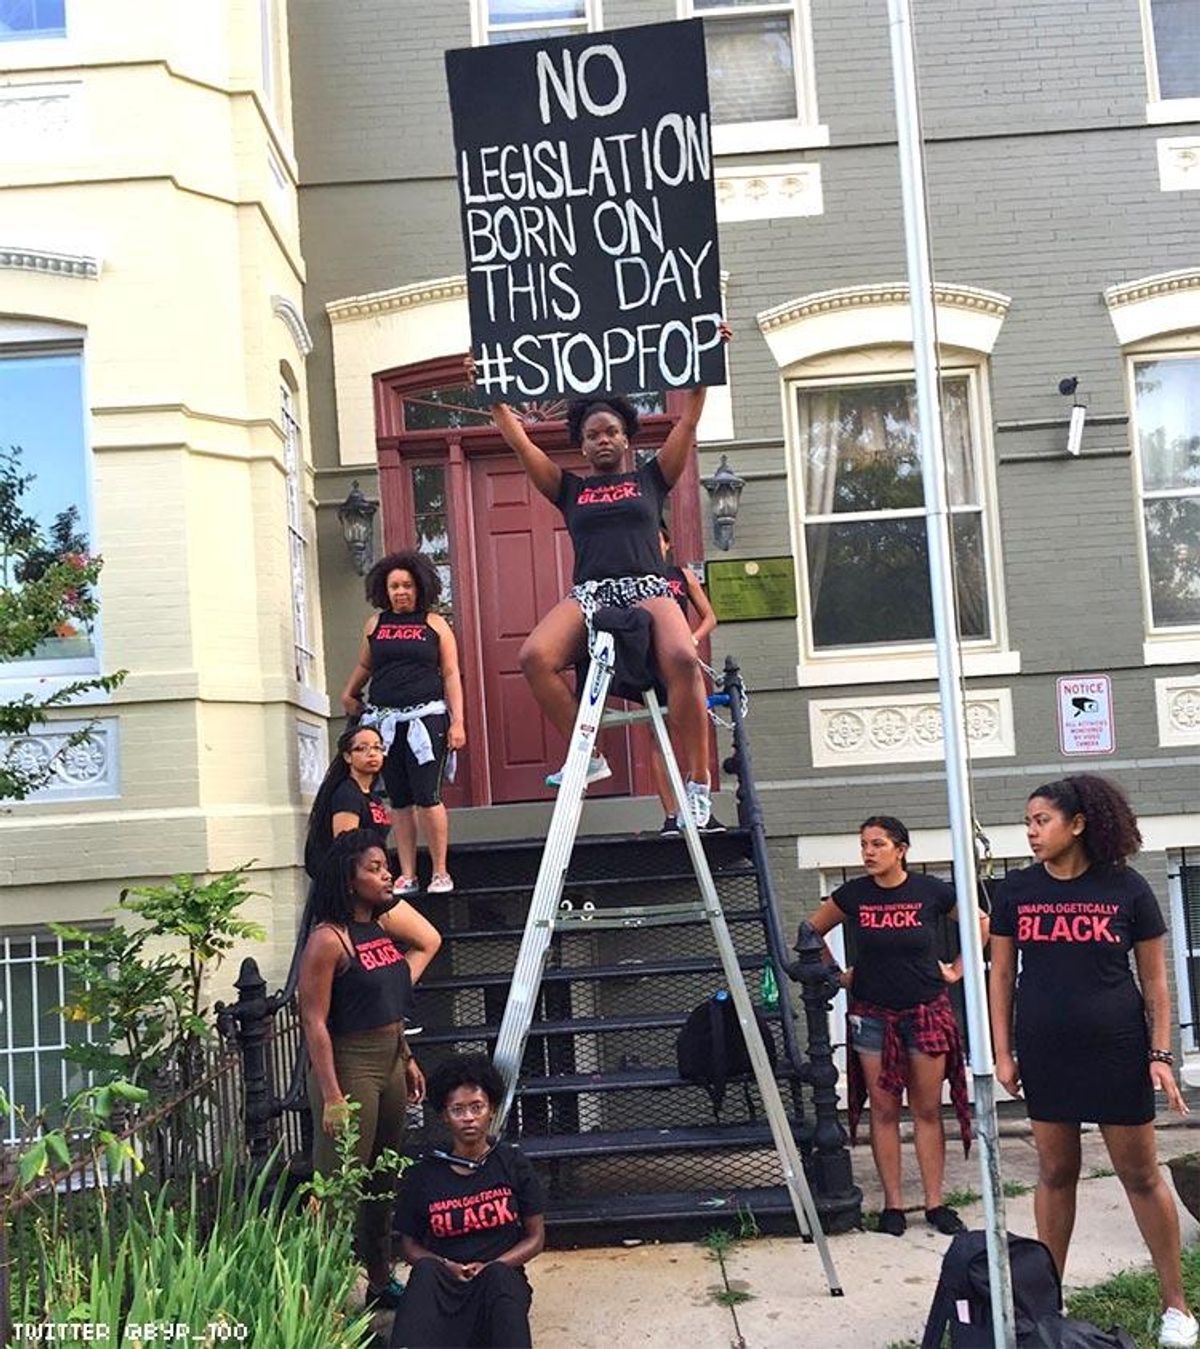 NO
LEGISLATION
BORN ON
THIS DAY
#STOPFOP
BLACK.
UNAPOLOGETICALLY
BLACK.
BLACK.
UNAPOLOGETICALLY
BLACK.
UNAPOLOGETICALLY
BLACK.
UNAPOLOGETICALLY
BLACK.
NOTICE
ALL ACTIVITIES
MONITORED
BY VIDEO
CAMERA
TWITTER @BYP_100